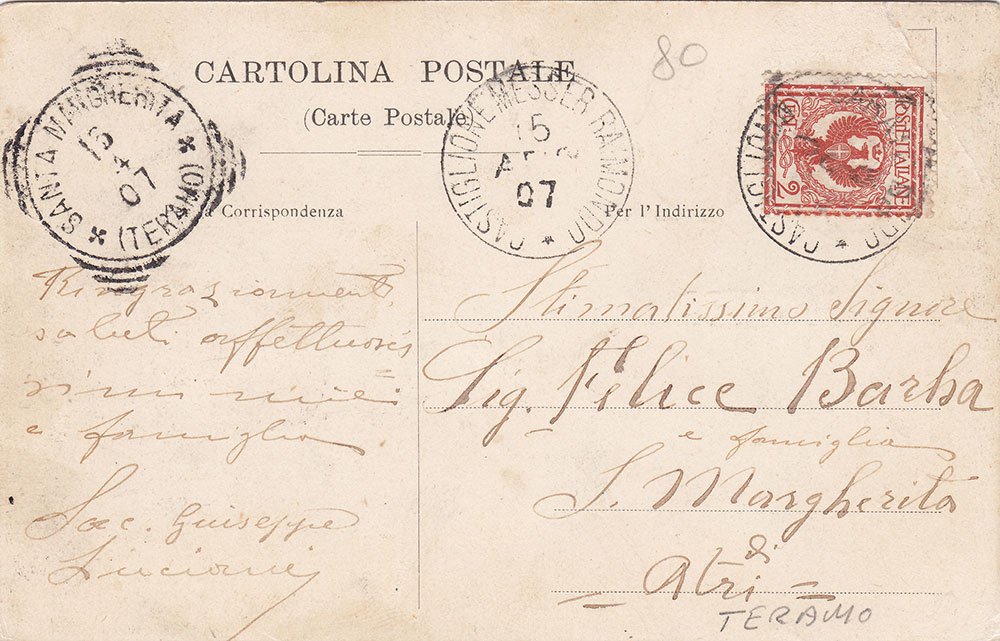 80
CARTOLINA POSTALE
(Carte Postale)
SANTA MARGHERITA
(TERAMO)
15
4
07
CASTIGLIONE MESSER RAIMONDO
15
07
POSTE ITALIANE
2
CASTIGLIO
NDO
a Corrispondenza
Per l'Indirizzo
Ringraziamenti,
saluti affettuosis
simi miei
e famiglia
Sac. Guiseppe
Luciani
Stimatissimo Signore
Sig. Felice Barba
e famiglia
S. Margherita
di
Atri
TERAMO